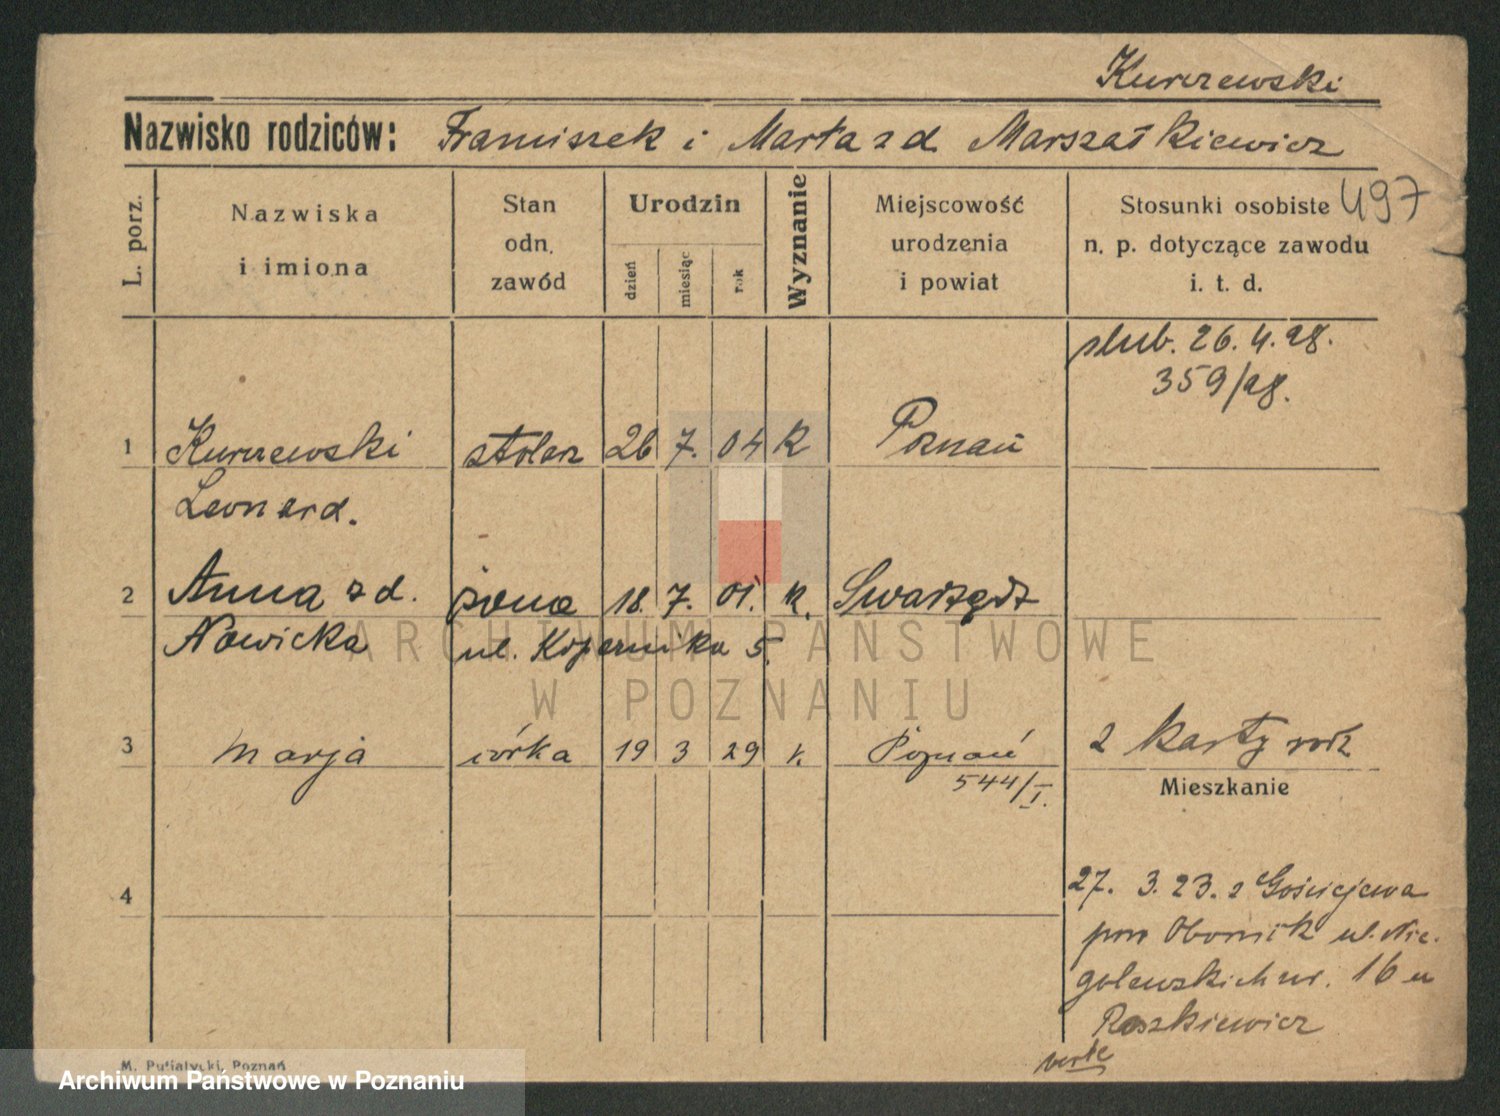 Kurczewski
Nazwisko rodziców: Franciszek i Marta z d. Marszałkiewicz
497
L. porz.
Nazwiska
i imiona
Stan
odn.
zawód
Urodzin
dzień
miesiąc
rok
Wyznanie
Miejscowość
urodzenia
i powiat
Stosunki osobiste
n. p. dotyczące zawodu
i. t. d.
slub. 26. 4. 28.
359/28.
1 Kurczewski stolarz 26 7. 04 K Poznań
Leonard.
2 Anna z d. żona 18. 7. 01. k. Swarzędz
Nowicka ul. Kopernika 5.
3 Marja córka 19 3 29 k. Poznań 2 karty rodz
544/I.
Mieszkanie
4
27. 3. 23. z Gościejewa
pow Obornik ul. Nie-
golewskich nr. 16 u
Roszkiewicz
verte
M. Putiatycki, Poznań
ARCHIWUM PAŃSTWOWE
W POZNANIU
Archiwum Państwowe w Poznaniu